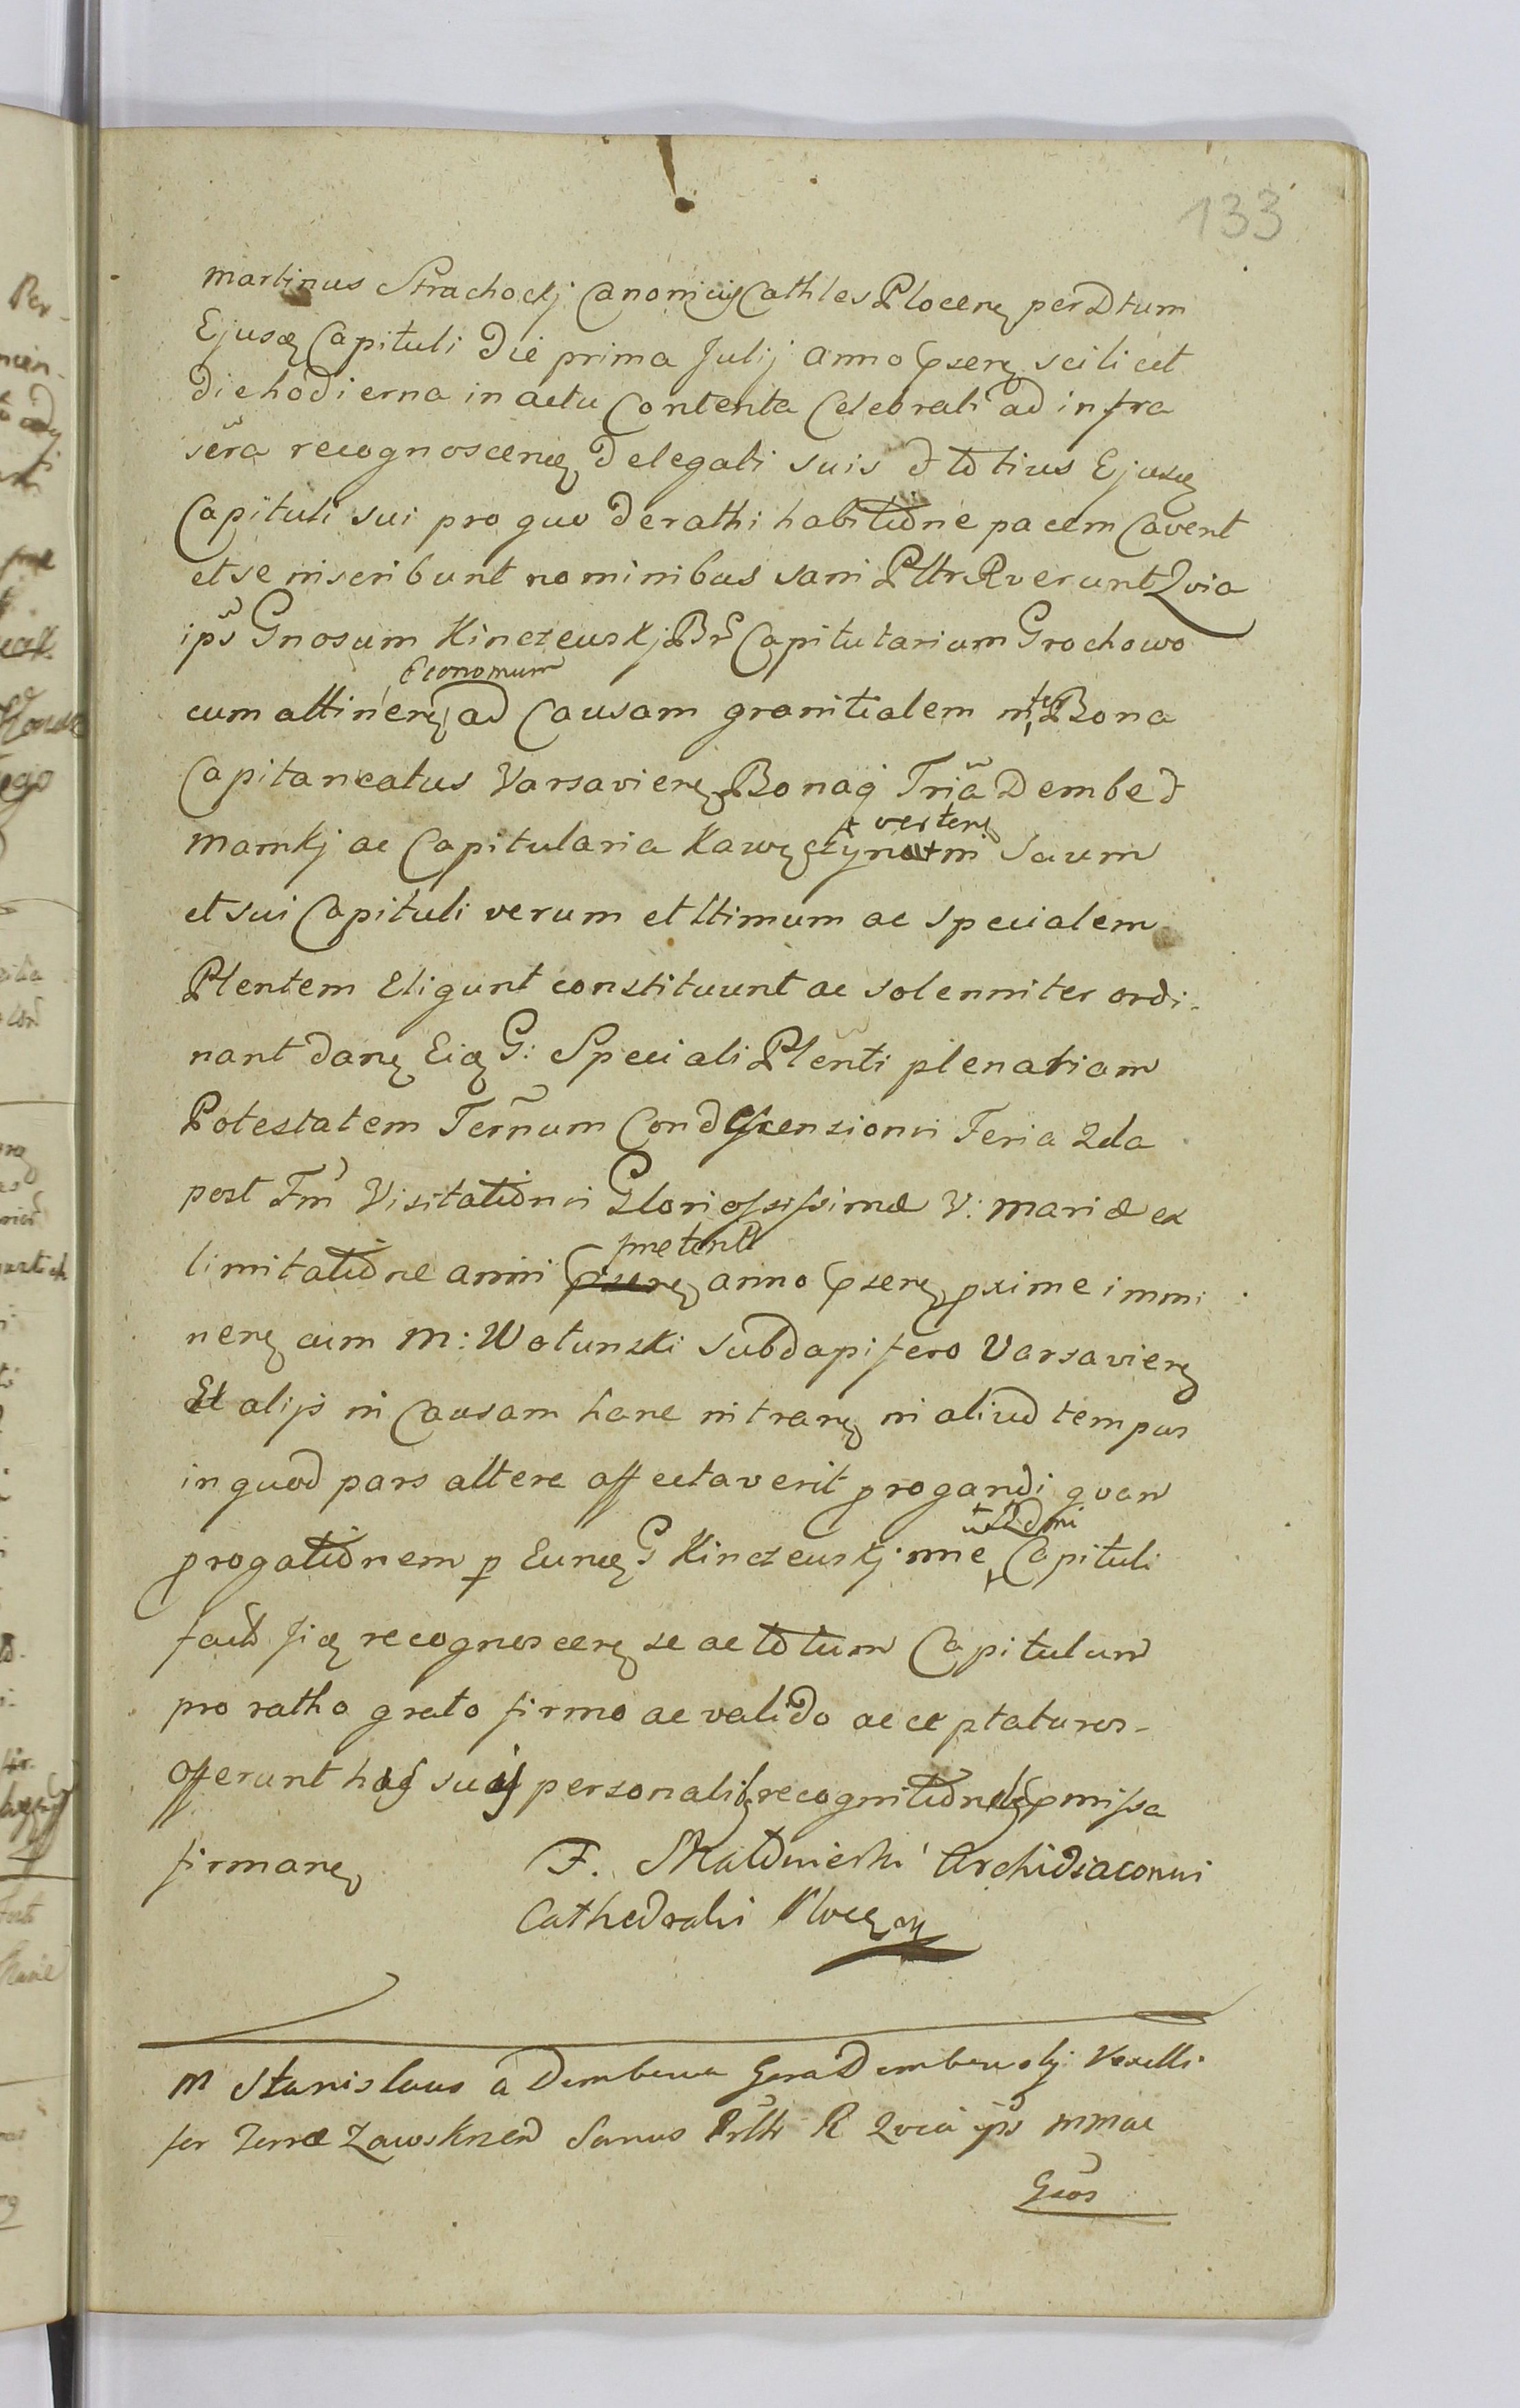 133
Martinus Strachockj Canonicus Cathles Plocen perDtum
Ejusd Capituli Die prima Julij anno psen scilicet
Die hodierna in actu Contenta Celebrati ad infra
scra recognoscend Delegati suis et totius Ejusd
Capituli sui pro quo De rathi habitione pacem Cavent
et se inscribunt nominibus sani Pltr Rverunt Qvia
ips Gnosum Kinczewskj Br Capitularium Grochowo
Economum
cum attinen ad Causam granitialem inter Bona
Capitaneatus Varsavien Bonaq Tria Dembe et
vertens
Mamkj ac Capitularia Kawęczyn Saum
et sui Capituli verum et ltimum ac specialem
Plentem Eligunt constituunt ac solenniter ordi-
nant dan Eid G: Speciali Plenti plenariam
Potestatem Ternum Condescensionis Feria 2da
post Fm Visitationis Gloriosissimæ V: Mariæ ex
limitatione anni præteriti anno psen pxime immi
nen cum M: Wolunski Subdapifero Varsavien
Et alijs in Causam hanc intran in aliud tempus
in quod pars altera affectaverit progandi qvam
progationem p Eund G Kinczewskj nne Capituli
fact sic recognoscen se ac totum Capitulum
pro ratho grato firmo ac valido acceptaturos-
offerunt has suis personalib recognitionib pmissa
firman F. Archidiaconus
Cathedralis Plocen
M Stanislaus a Dembewa Gora Dembewskj Vexilli-
fer Terræ Zawsknen Sanus Pltr R Qvia ips mmae
Gsos